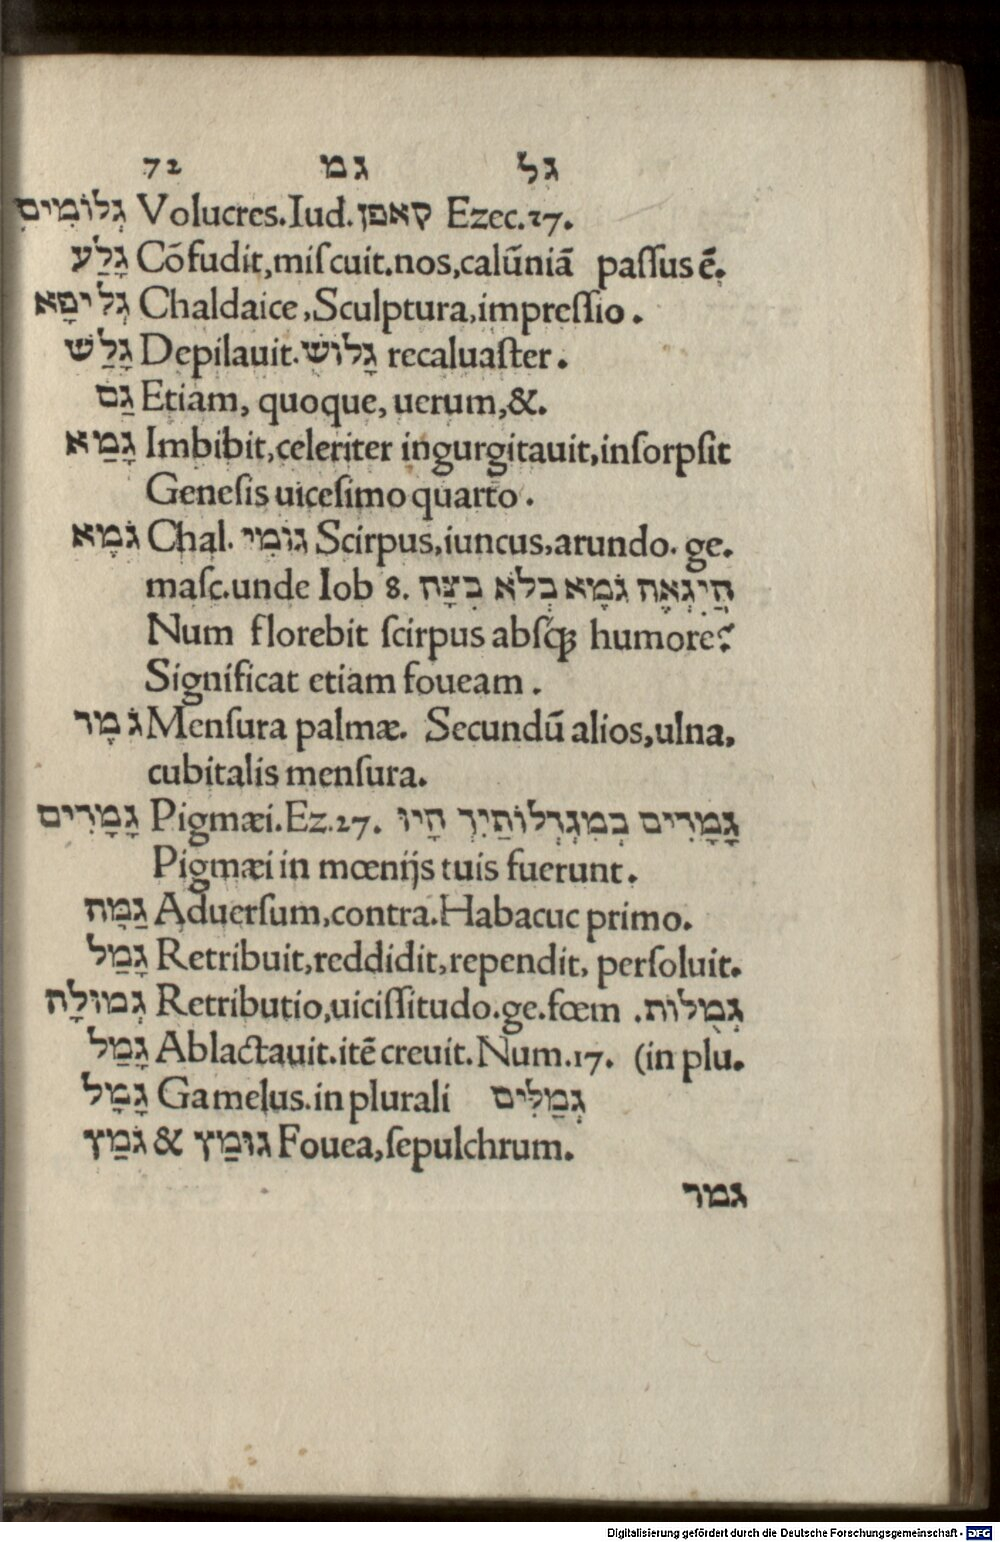 72 גמ גל
גְלוֹמִים Volucres.Iud.קאפן Ezec.27.
גָלַע Cōfudit,miſcuit.nos,calūniā paſſus ē.
גְלִיפָא Chaldaice,Sculptura,impreſſio.
גָלַשׁ Depilauit.גָלוּשׁ recaluaſter.
גַם Etiam, quoque, uerum,&.
גָמַא Imbibit,celeriter ingurgitauit,inſorpſit
Geneſis uiceſimo quarto.
גֹמֶא Chal. גוֹמִי Scirpus,iuncus,arundo. ge.
maſc.unde Iob 8. הֲיִגְאֶה גֹמֶא בְלֹא בִצָּה
Num florebit ſcirpus abſꝗ humore?
Significat etiam foueam.
גֹמֶר Menſura palmæ. Secundū alios,ulna,
cubitalis menſura.
גָמָרִים Pigmæi.Ez.27. גָמָרִים בְמִגְרְלוֹתַיִךְ הָיוּ
Pigmæi in mœnijs tuis fuerunt.
גַמָּה Aduerſum,contra.Habacuc primo.
גָמַל Retribuit,reddidit,rependit, perſoluit.
גְמוּלָה Retributio,uiciſſitudo.ge.fœm .גְמֻלוֹת
גָמַל Ablactauit.itē creuit.Num.17. (in plu.
גָמָל Gamelus.in plurali גְמַלִּים
גֹמַץ & גוּמַץ Fouea,ſepulchrum.
גמר
Digitalisierung gefördert durch die Deutsche Forschungsgemeinschaft - DFG